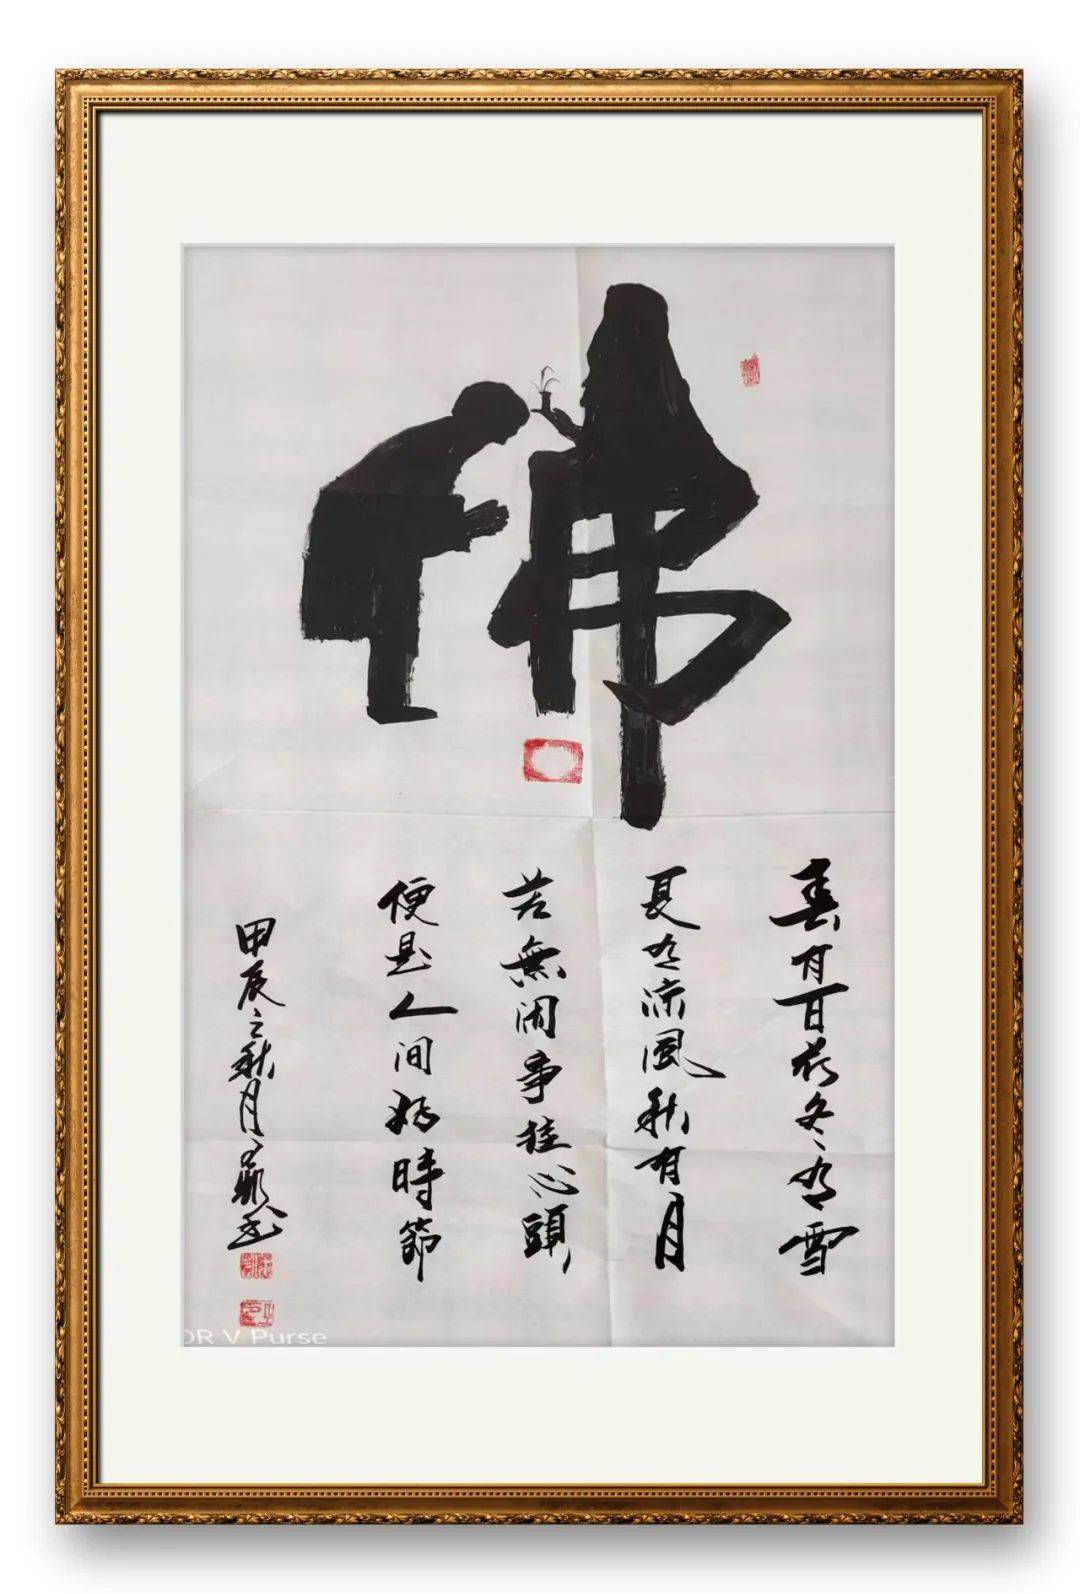 佛
春有百花冬有雪
夏有涼風秋有月
若無闲事挂心頭
便是人间好時節
甲辰之秋月
V Purse